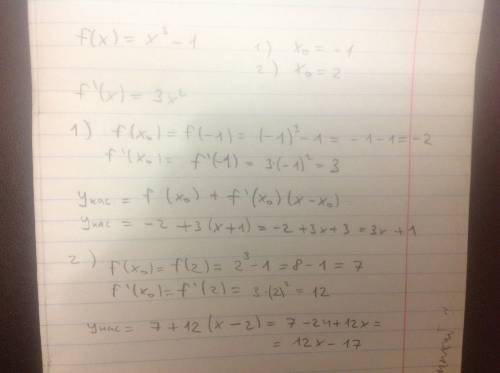 f(x) = x³ - 1
1) x₀ = -1
2) x₀ = 2
f'(x) = 3x²
1) f(x₀) = f(-1) = (-1)³ - 1 = -1 - 1 = -2
f'(x₀) = f'(-1) = 3·(-1)² = 3
yкас = f(x₀) + f'(x₀)(x-x₀)
yкас = -2 + 3(x+1) = -2 + 3x + 3 = 3x + 1
2) f(x₀) = f(2) = 2³ - 1 = 8 - 1 = 7
f'(x₀) = f'(2) = 3·(2)² = 12
yкас = 7 + 12(x-2) = 7 - 24 + 12x =
= 12x - 17